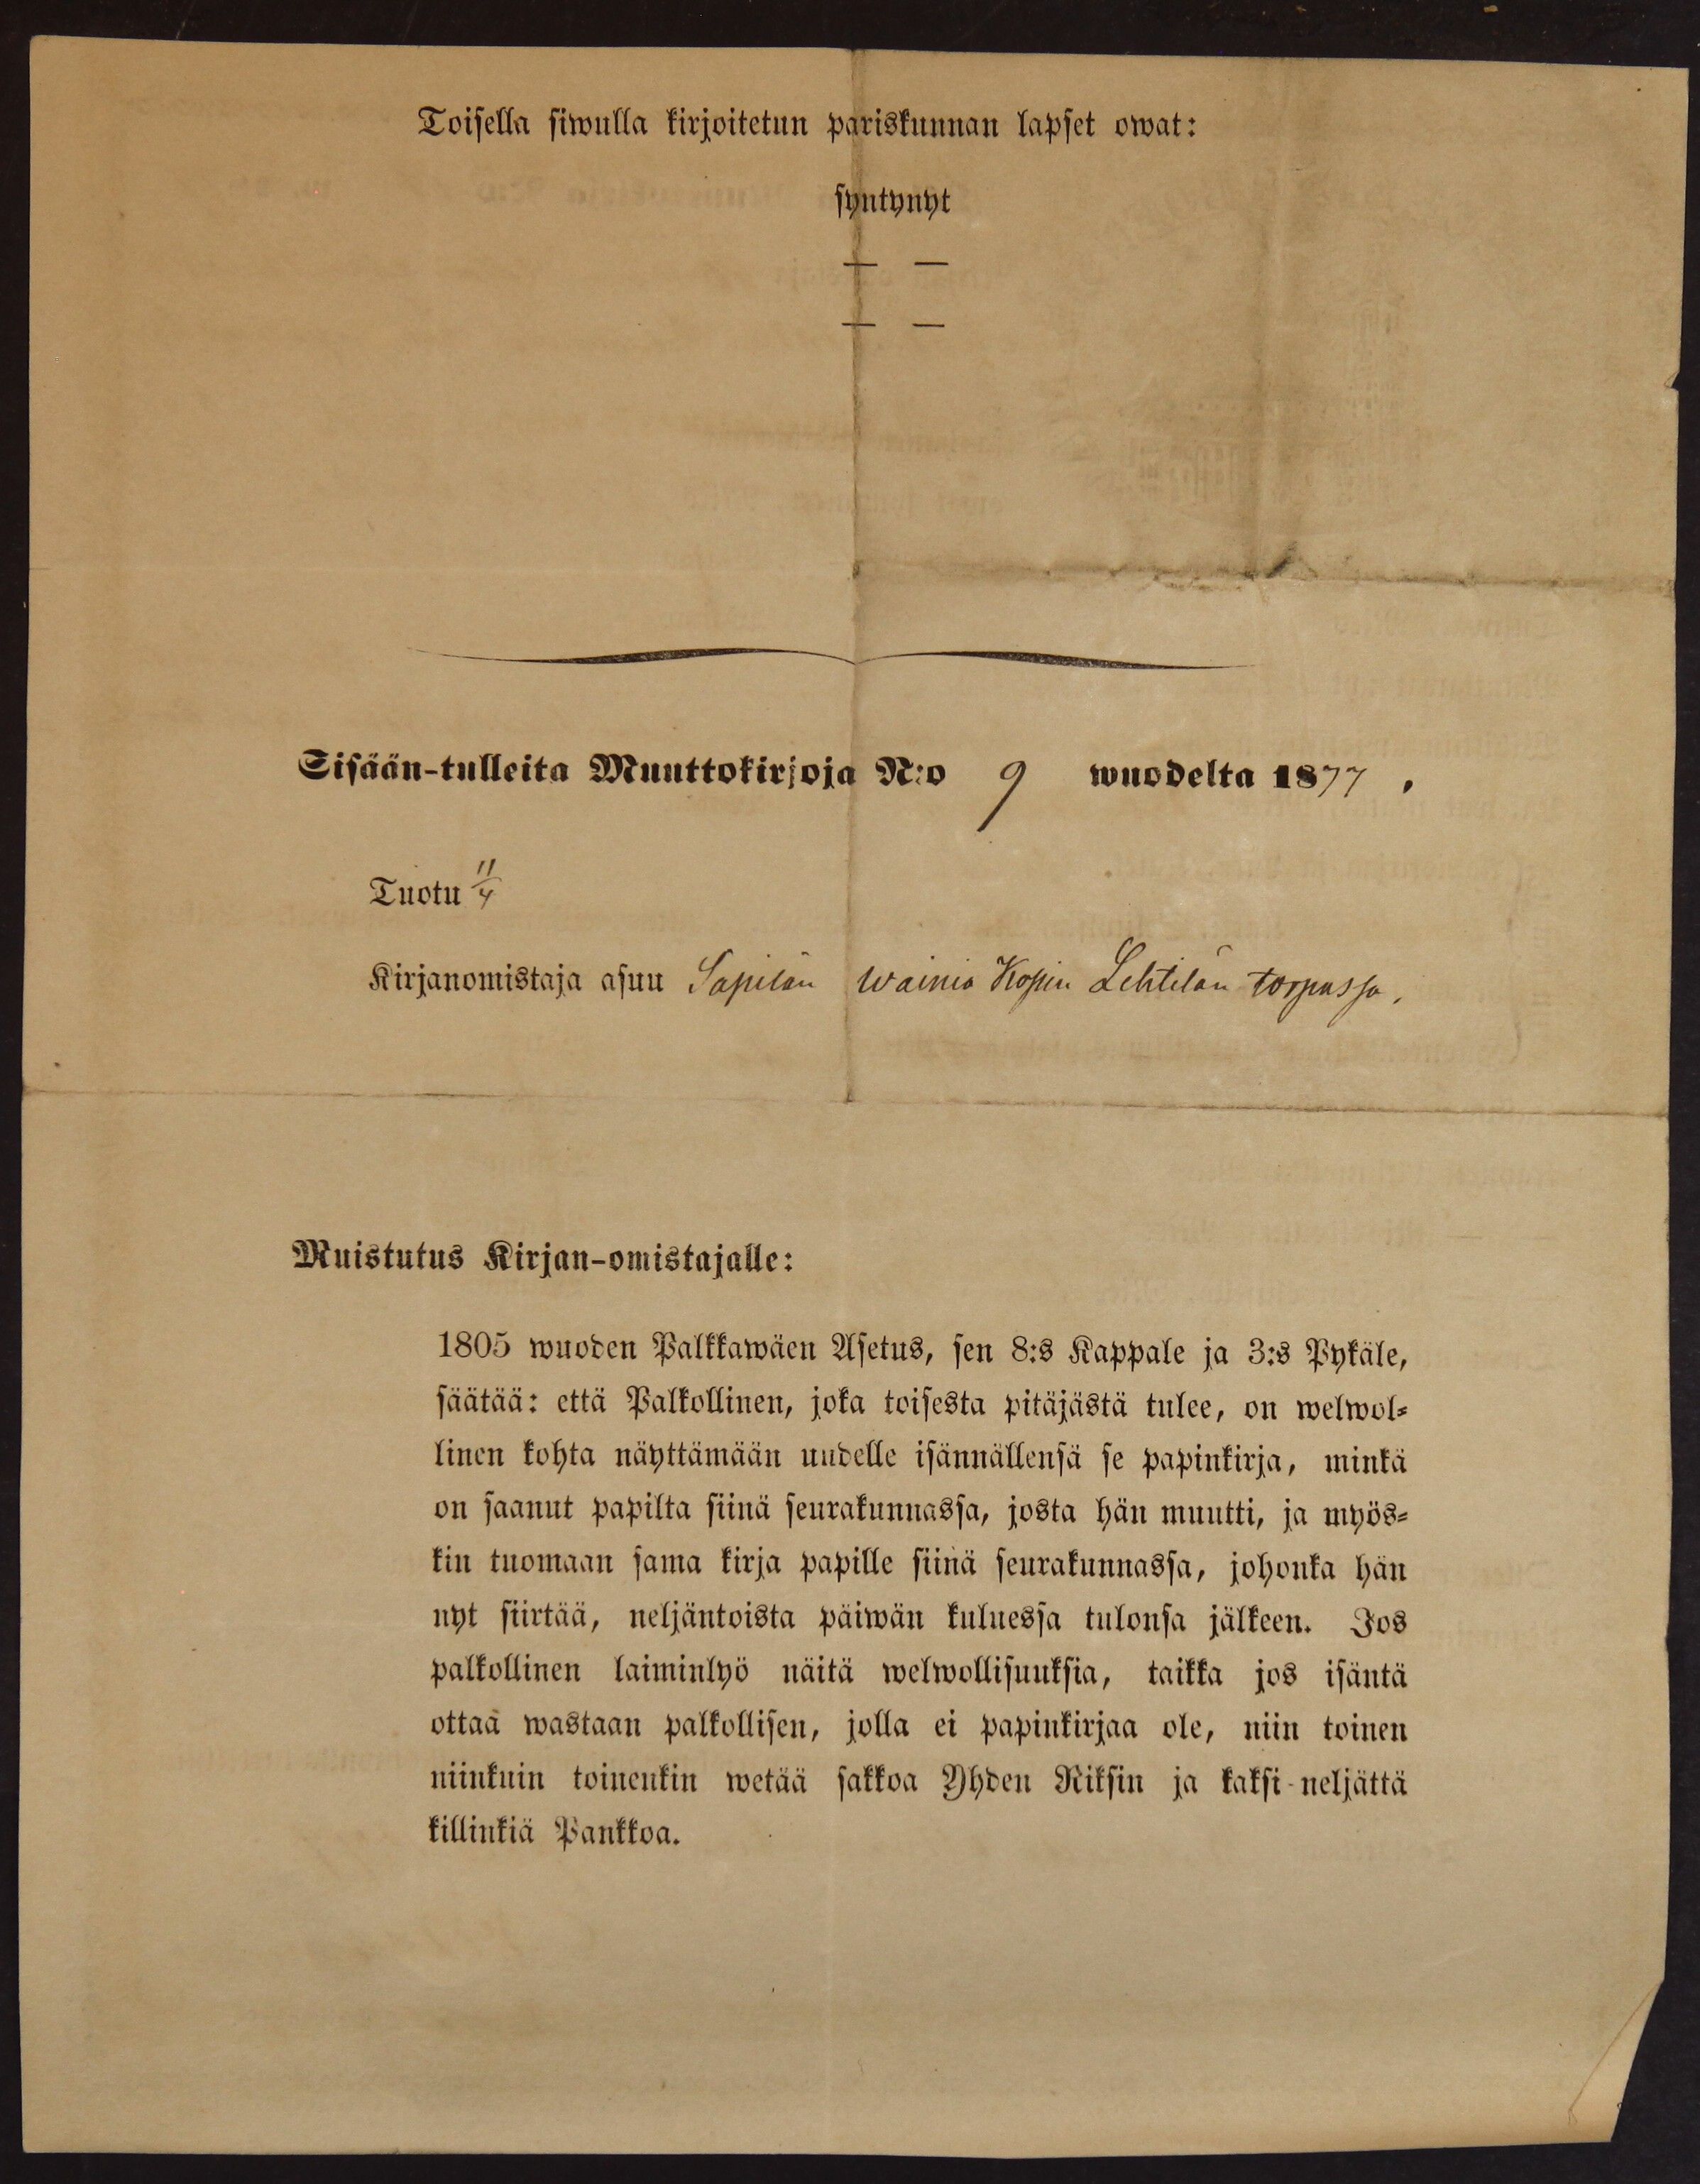 Toisella siwulla kirjoitetun pariskunnan lapset owat:
syntynyt
— —
— —
Sisään-tulleita Muuttokirjoja N:o 9 wuodelta 1877,
Tuotu 11/4
Kirjanomistaja asuu Sapilän Wainio Kopin Lehtilän torpassa.
Muistutus Kirjan-omistajalle:
1805 wuoden Palkkawäen Asetus, sen 8:s Kappale ja 3:s Pykäle,
säätää: että Palkollinen, joka toisesta pitäjästä tulee, on welwol-
linen kohta näyttämään uudelle isännällensä se papinkirja, minkä
on saanut papilta siinä seurakunnassa, josta hän muutti, ja myös-
kin tuomaan sama kirja papille siinä seurakunnassa, johonka hän
nyt siirtää, neljäntoista päiwän kuluessa tulonsa jälkeen. Jos
palkollinen laiminlyö näitä welwollisuuksia, taikka jos isäntä
ottaa wastaan palkollisen, jolla ei papinkirjaa ole, niin toinen
niinkuin toinenkin wetää sakkoa Yhden Riksin ja kaksi-neljättä
killinkiä Pankkoa.